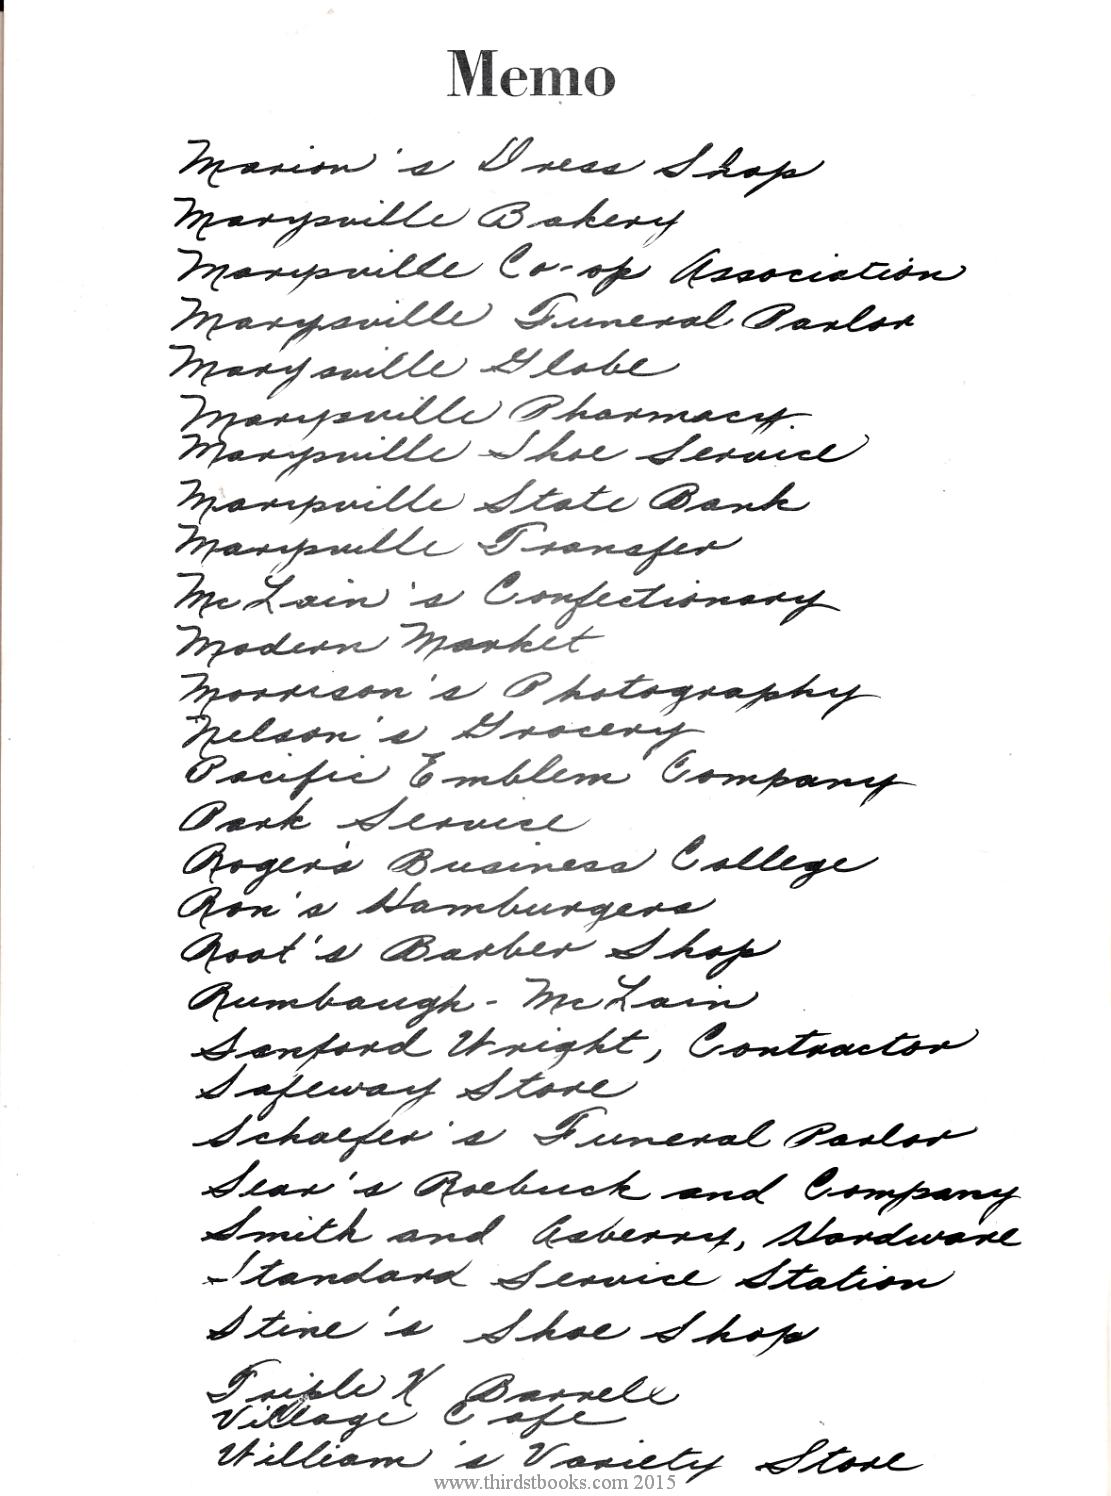 Memo
Marion's Dress Shop
Marysville Bakery
Marysville Co-op Association
Marysville Funeral Parlor
Marysville Globe
Marysville Pharmacy.
Marysville Shoe Service
Marysville State Bank
Marysville Transfer
McLain's Confectionary
Modern Market
Morrison's Photography
Nelson's Grocery
Pacific Emblem Company
Park Service
Roger's Business College
Ron's Hamburgers
Root's Barber Shop
Rumbaugh - McLain
Sanford Wright, Contractor
Safeway Store
Schaefer's Funeral Parlor
Sear's Roebuck and Company
Smith and Asberry, Hardware
Standard Service Station
Stine's Shoe Shop
Triple X Barrel
Village Cafe
William's Variety Store
www.thirdstbooks.com 2015